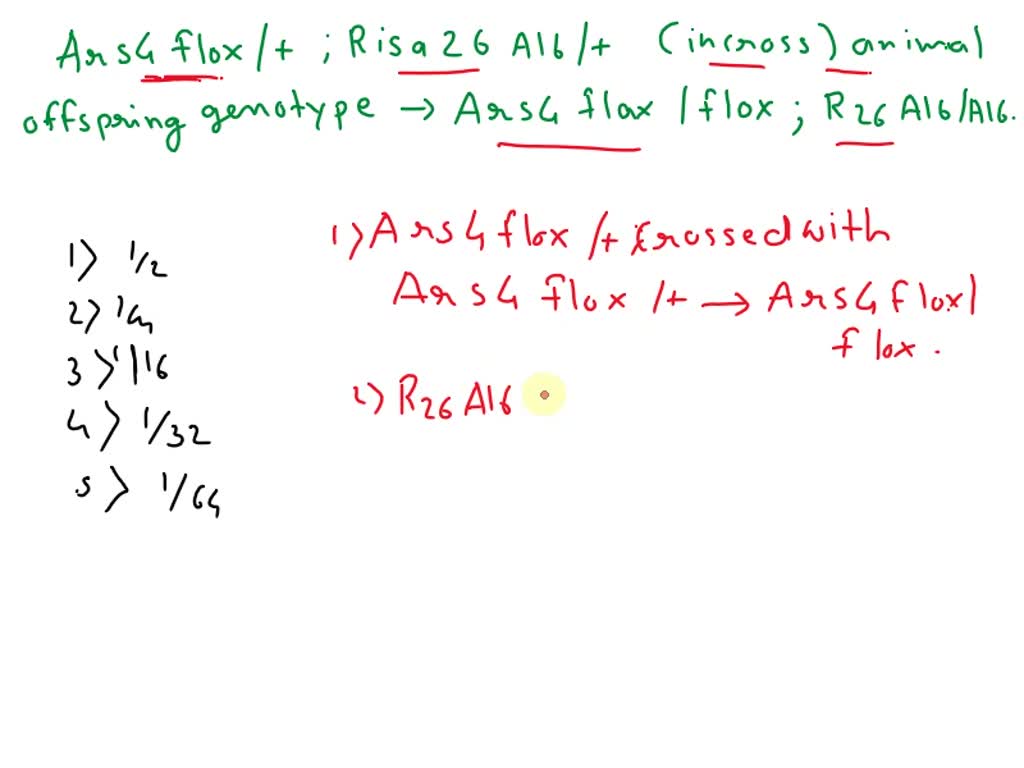 Ars4 flox /+ ; Risa26 A16/+ (incross) animal
offspring genotype → Ars4 flox / flox ; R26 A16/A16.
1) 1/2
2) 1/4
3) 1/16
4) 1/32
5) 1/64
1) Ars4 flox /+ crossed with
Ars4 flox /+ → Ars4 flox/
flox .
2) R26 A16